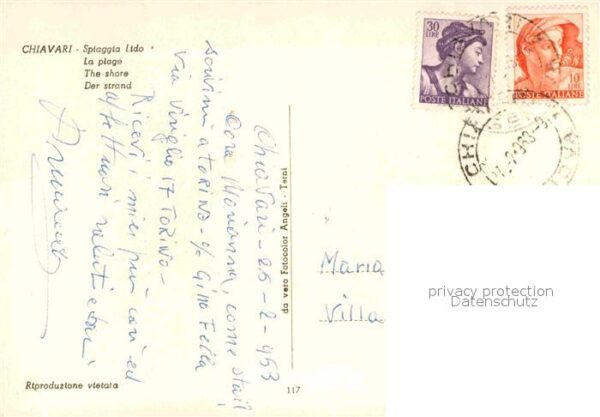 CHIAVARI - Spiaggia Lido
La plage
The shore
Der strand
30
LIRE
POSTE ITALIANE
10
LIRE
POSTE ITALIANE
Chiavari - 25-2-963
Cara Marianna, come stai,
scrivimi a TORINO - c/o Gino Fella
Via Virgilio 17 TORINO -
Ricevi i miei più cari ed
affettuosi saluti e baci
da vera Fotocolor Angeli - Terni
Maria
Villa
privacy protection
Datenschutz
Riproduzione vietata
117